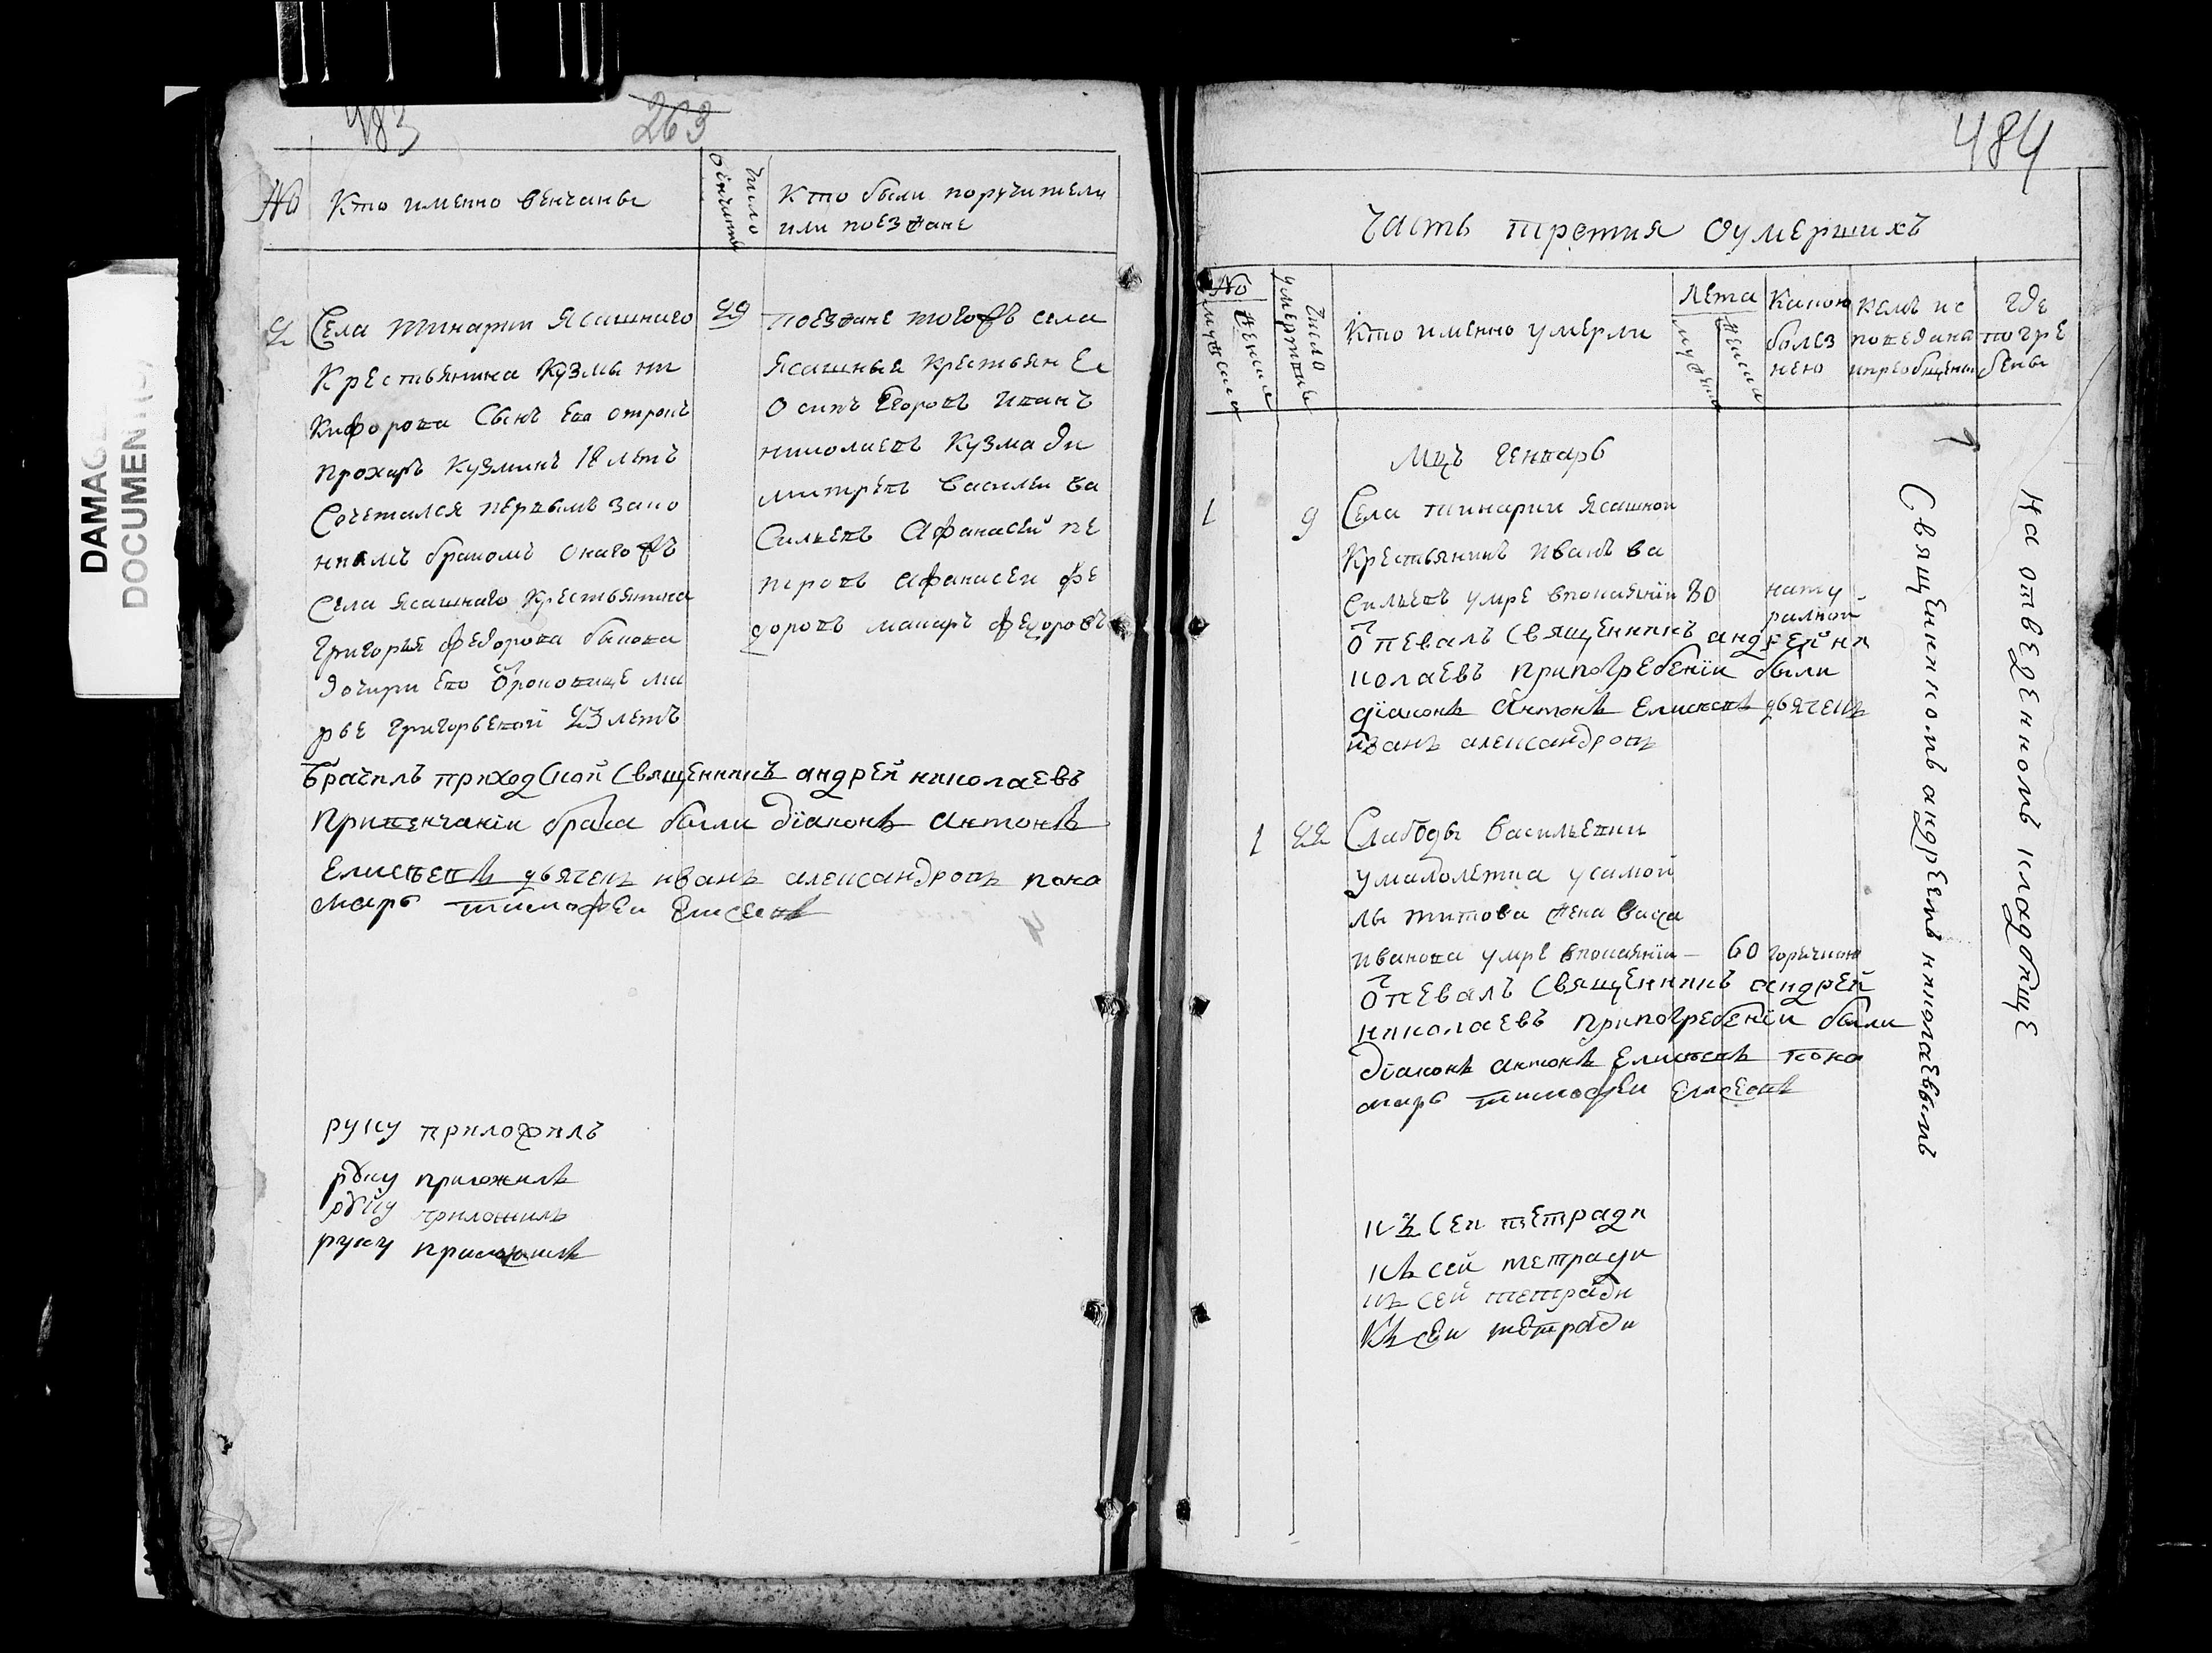 483
263
№ Кто именно венчаны
число венчания
Кто были поручители
или поезжане
2 Села тинарли Ясашнаго
Крестьянина Кузмы ни
кифорова Сынъ Ево отрокъ
прохаръ Кузминъ 18 летъ
Сочетался первымъ зако
ннымъ бракомъ Онагожъ
Села ясашнаго Крестьянина
Григорья федорова быкова
дочири Ево
Ма
рье Григорьевой 23 летъ
29
поезжане тогожъ села
Ясашныя крестьяне
Осипъ Егоровъ Иванъ
николаевъ Кузма ди
митревъ Василеи ва
Сильевъ Афанасей пе
тровъ афанасеи фе
доровъ макаръ федоровъ
Брачилъ приходской Священникъ андрей николаевъ
Привенчании брака были диаконъ антонъ
Елисѣевъ дьячекъ иванъ александровъ пона
марь тимофеи Елисеевъ
руку приложилъ
руку приложилъ
руку приложилъ
руку приложилъ
DAMAGE
DOCUMENT(S)
484
Часть третия Оумершихъ
№
мужеска
женска
Число
умертвы
Кто именно умерли
Лета
мужеска
женска
Какою
болез
нею
Кемъ ис
поведана
иприобщены
где
погре
бены
Мцъ Генварь
1 9 Села тинарли ясашнои
Крестьянинъ иванъ ва
сильевъ умре впокаянїи 80
нату
ралной
Отпевалъ Священникъ андрей ни
колаевъ припогребенїи были
дїаконъ Антонъ Елисѣевъ дьячекъ
иванъ александровъ
1 22 Слабоды Васильевки
умалолетна
усамой
лы титова жена Васса
иванова умре впокаянїи – 60 горячкою
Отпевалъ Священникъ андрей
николаевъ припогребенїи были
дїаконъ антонъ Елисѣевъ пона
марь тимофеи Елисеевъ
къ сеи тетради
къ сей тетради
къ сей тетради
Къ сеи тетради
Священникомъ андреемъ николаевымъ
На отведенномъ кладбище